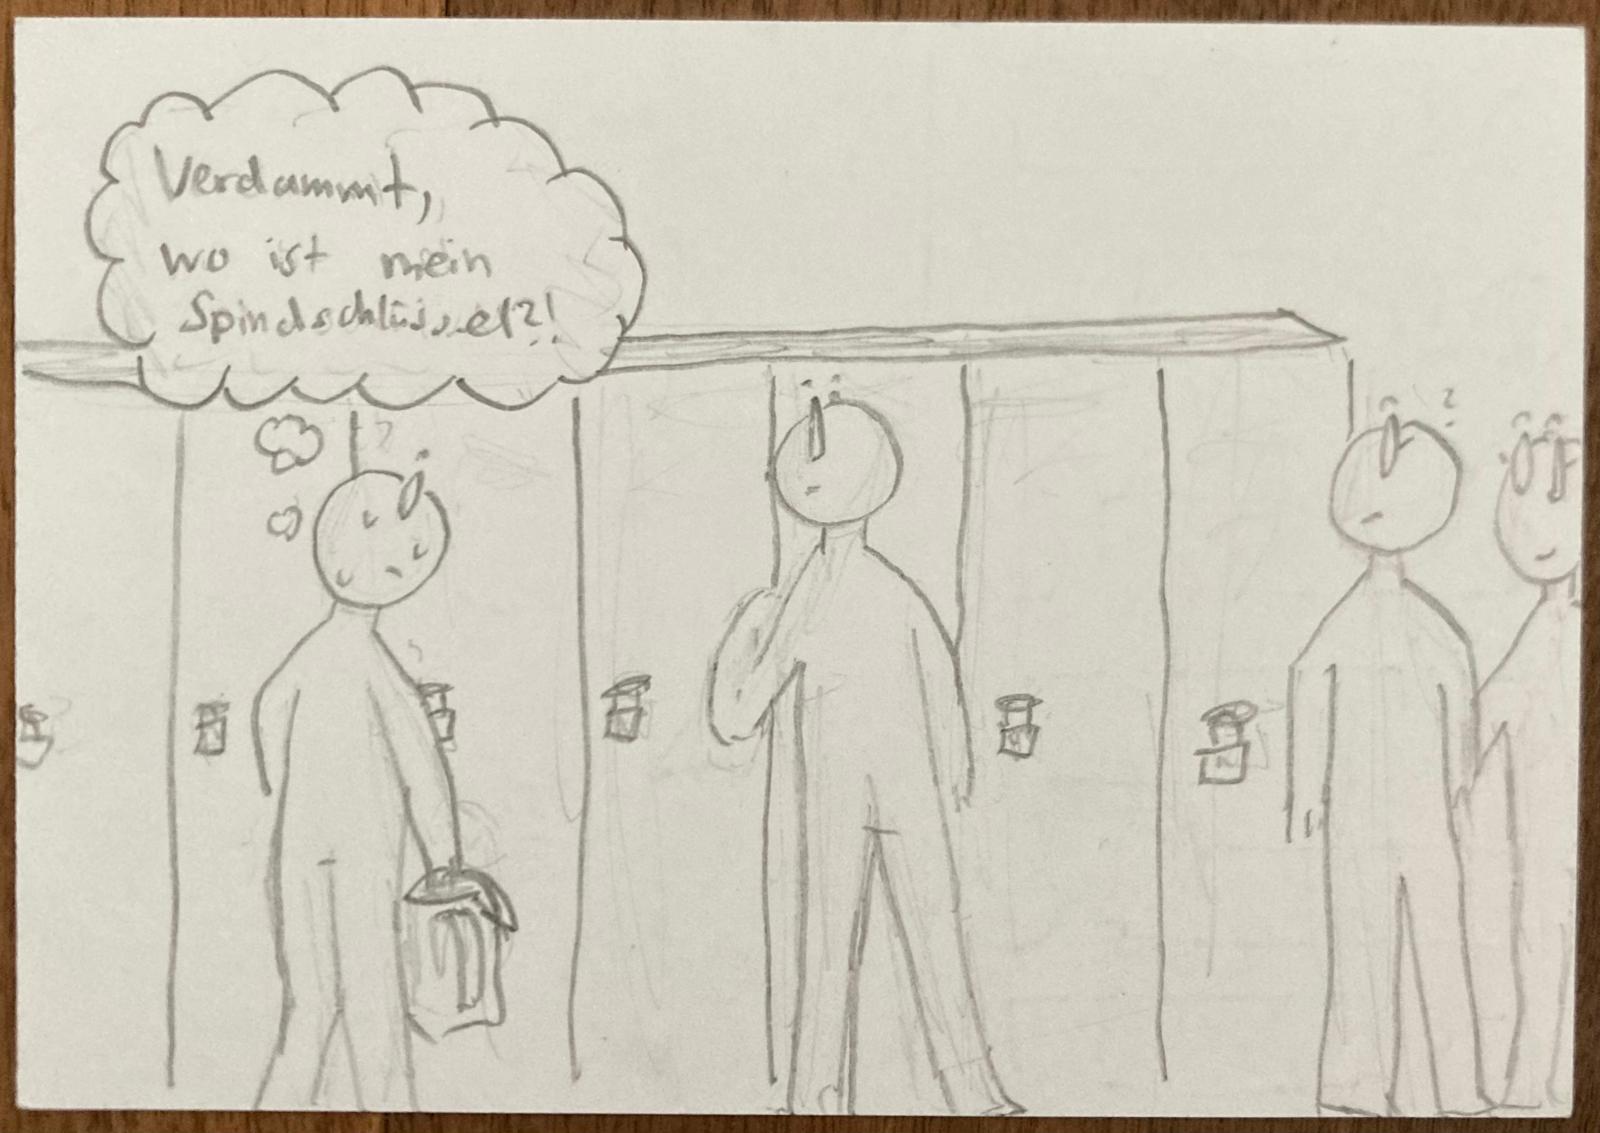 Verdammt,
wo ist mein
Spindschlüssel?!
?